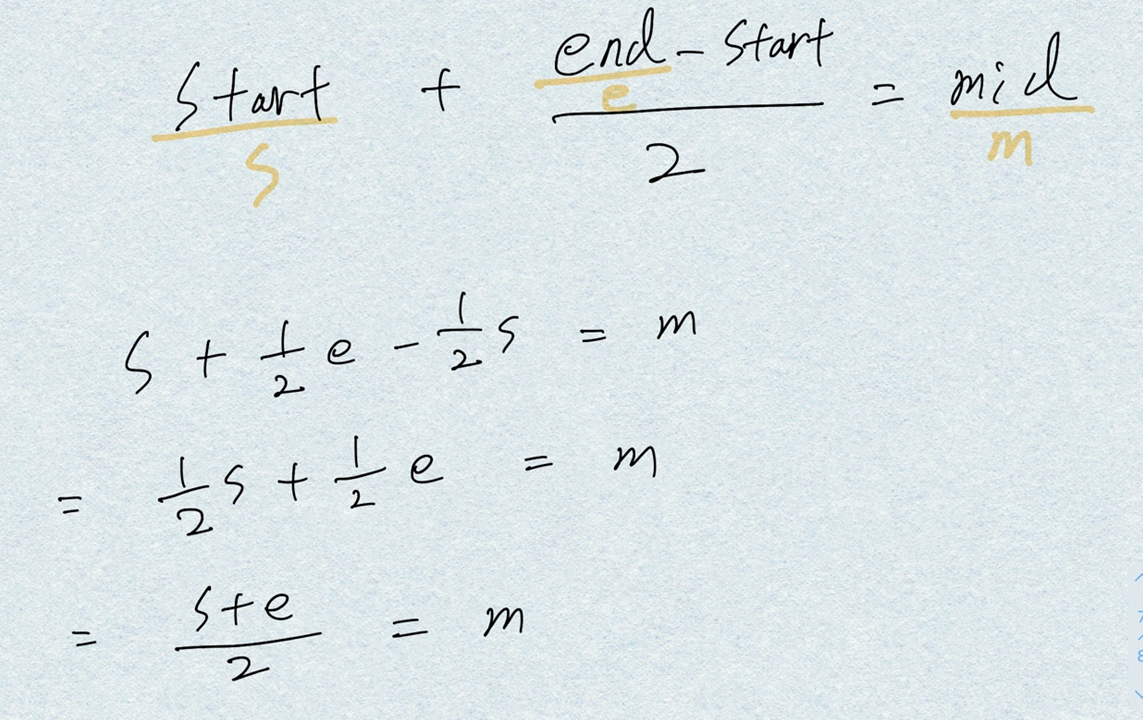 start + (end - start)/2 = mid
s e m
s + 1/2 e - 1/2 s = m
= 1/2 s + 1/2 e = m
= (s+e)/2 = m